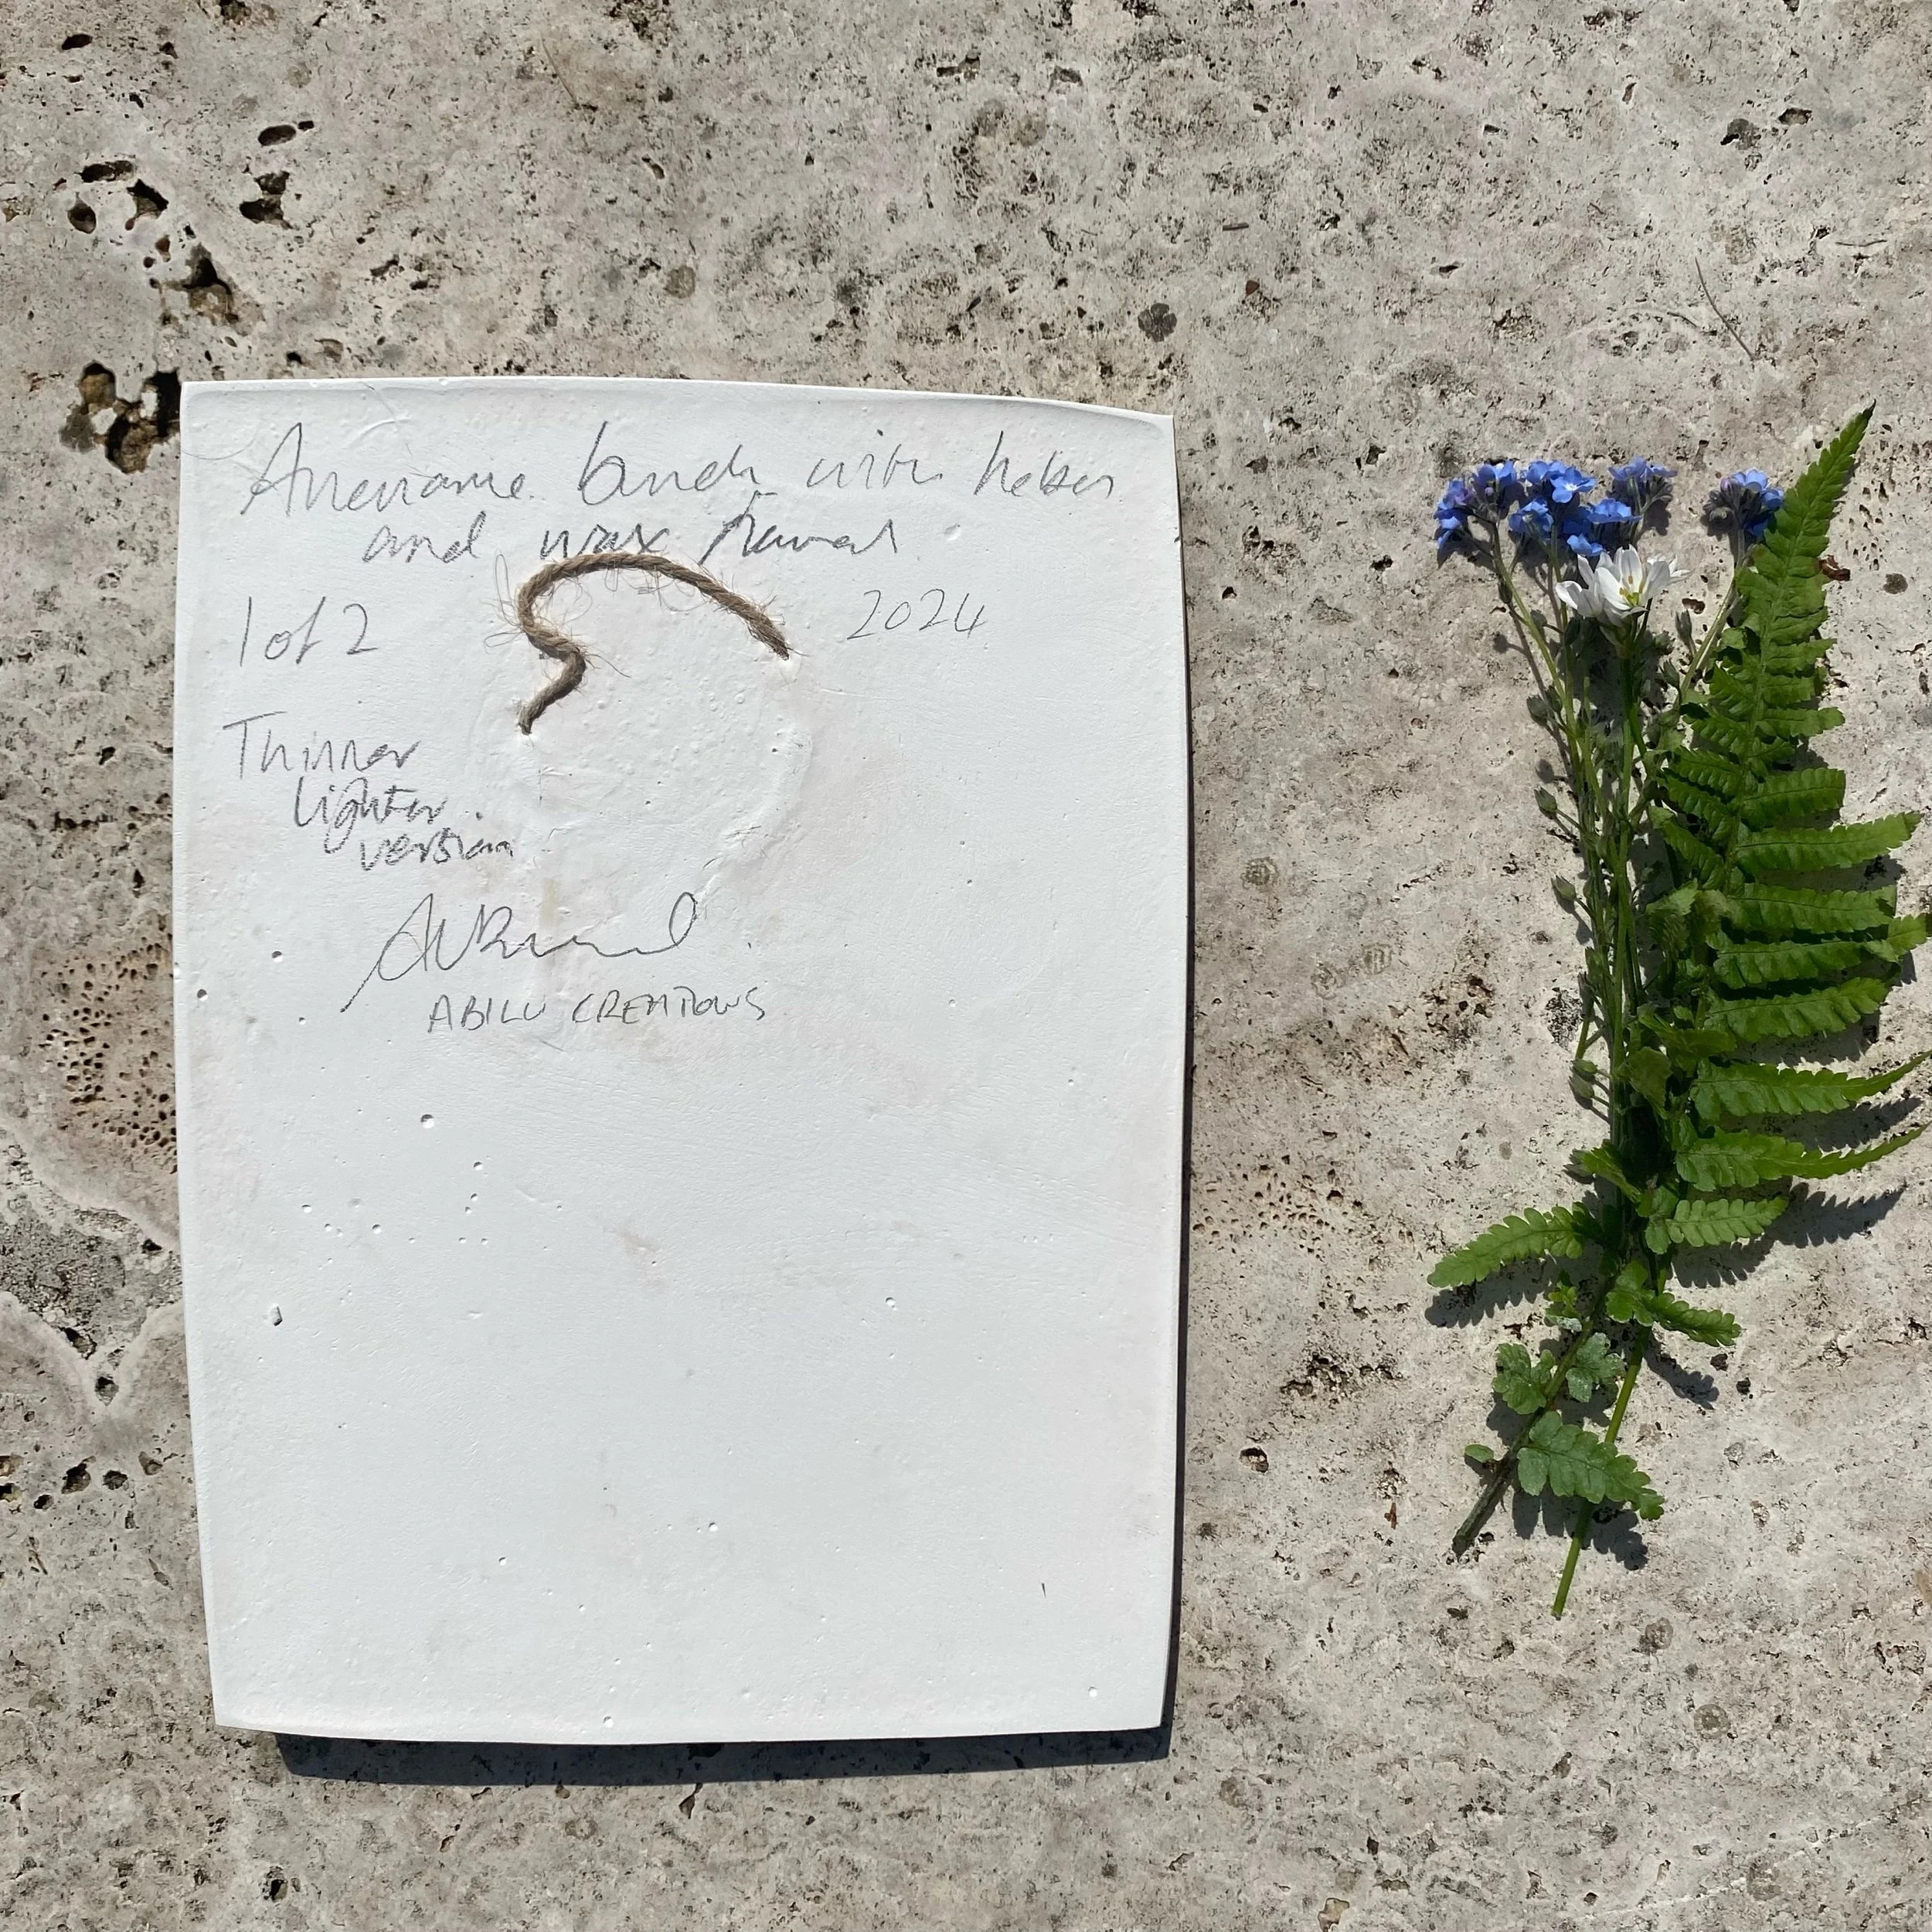 Anemone bunch with hebes
and wax flowers
1 of 2
2024
Thinner
lighter
version
ABILU CREATIONS